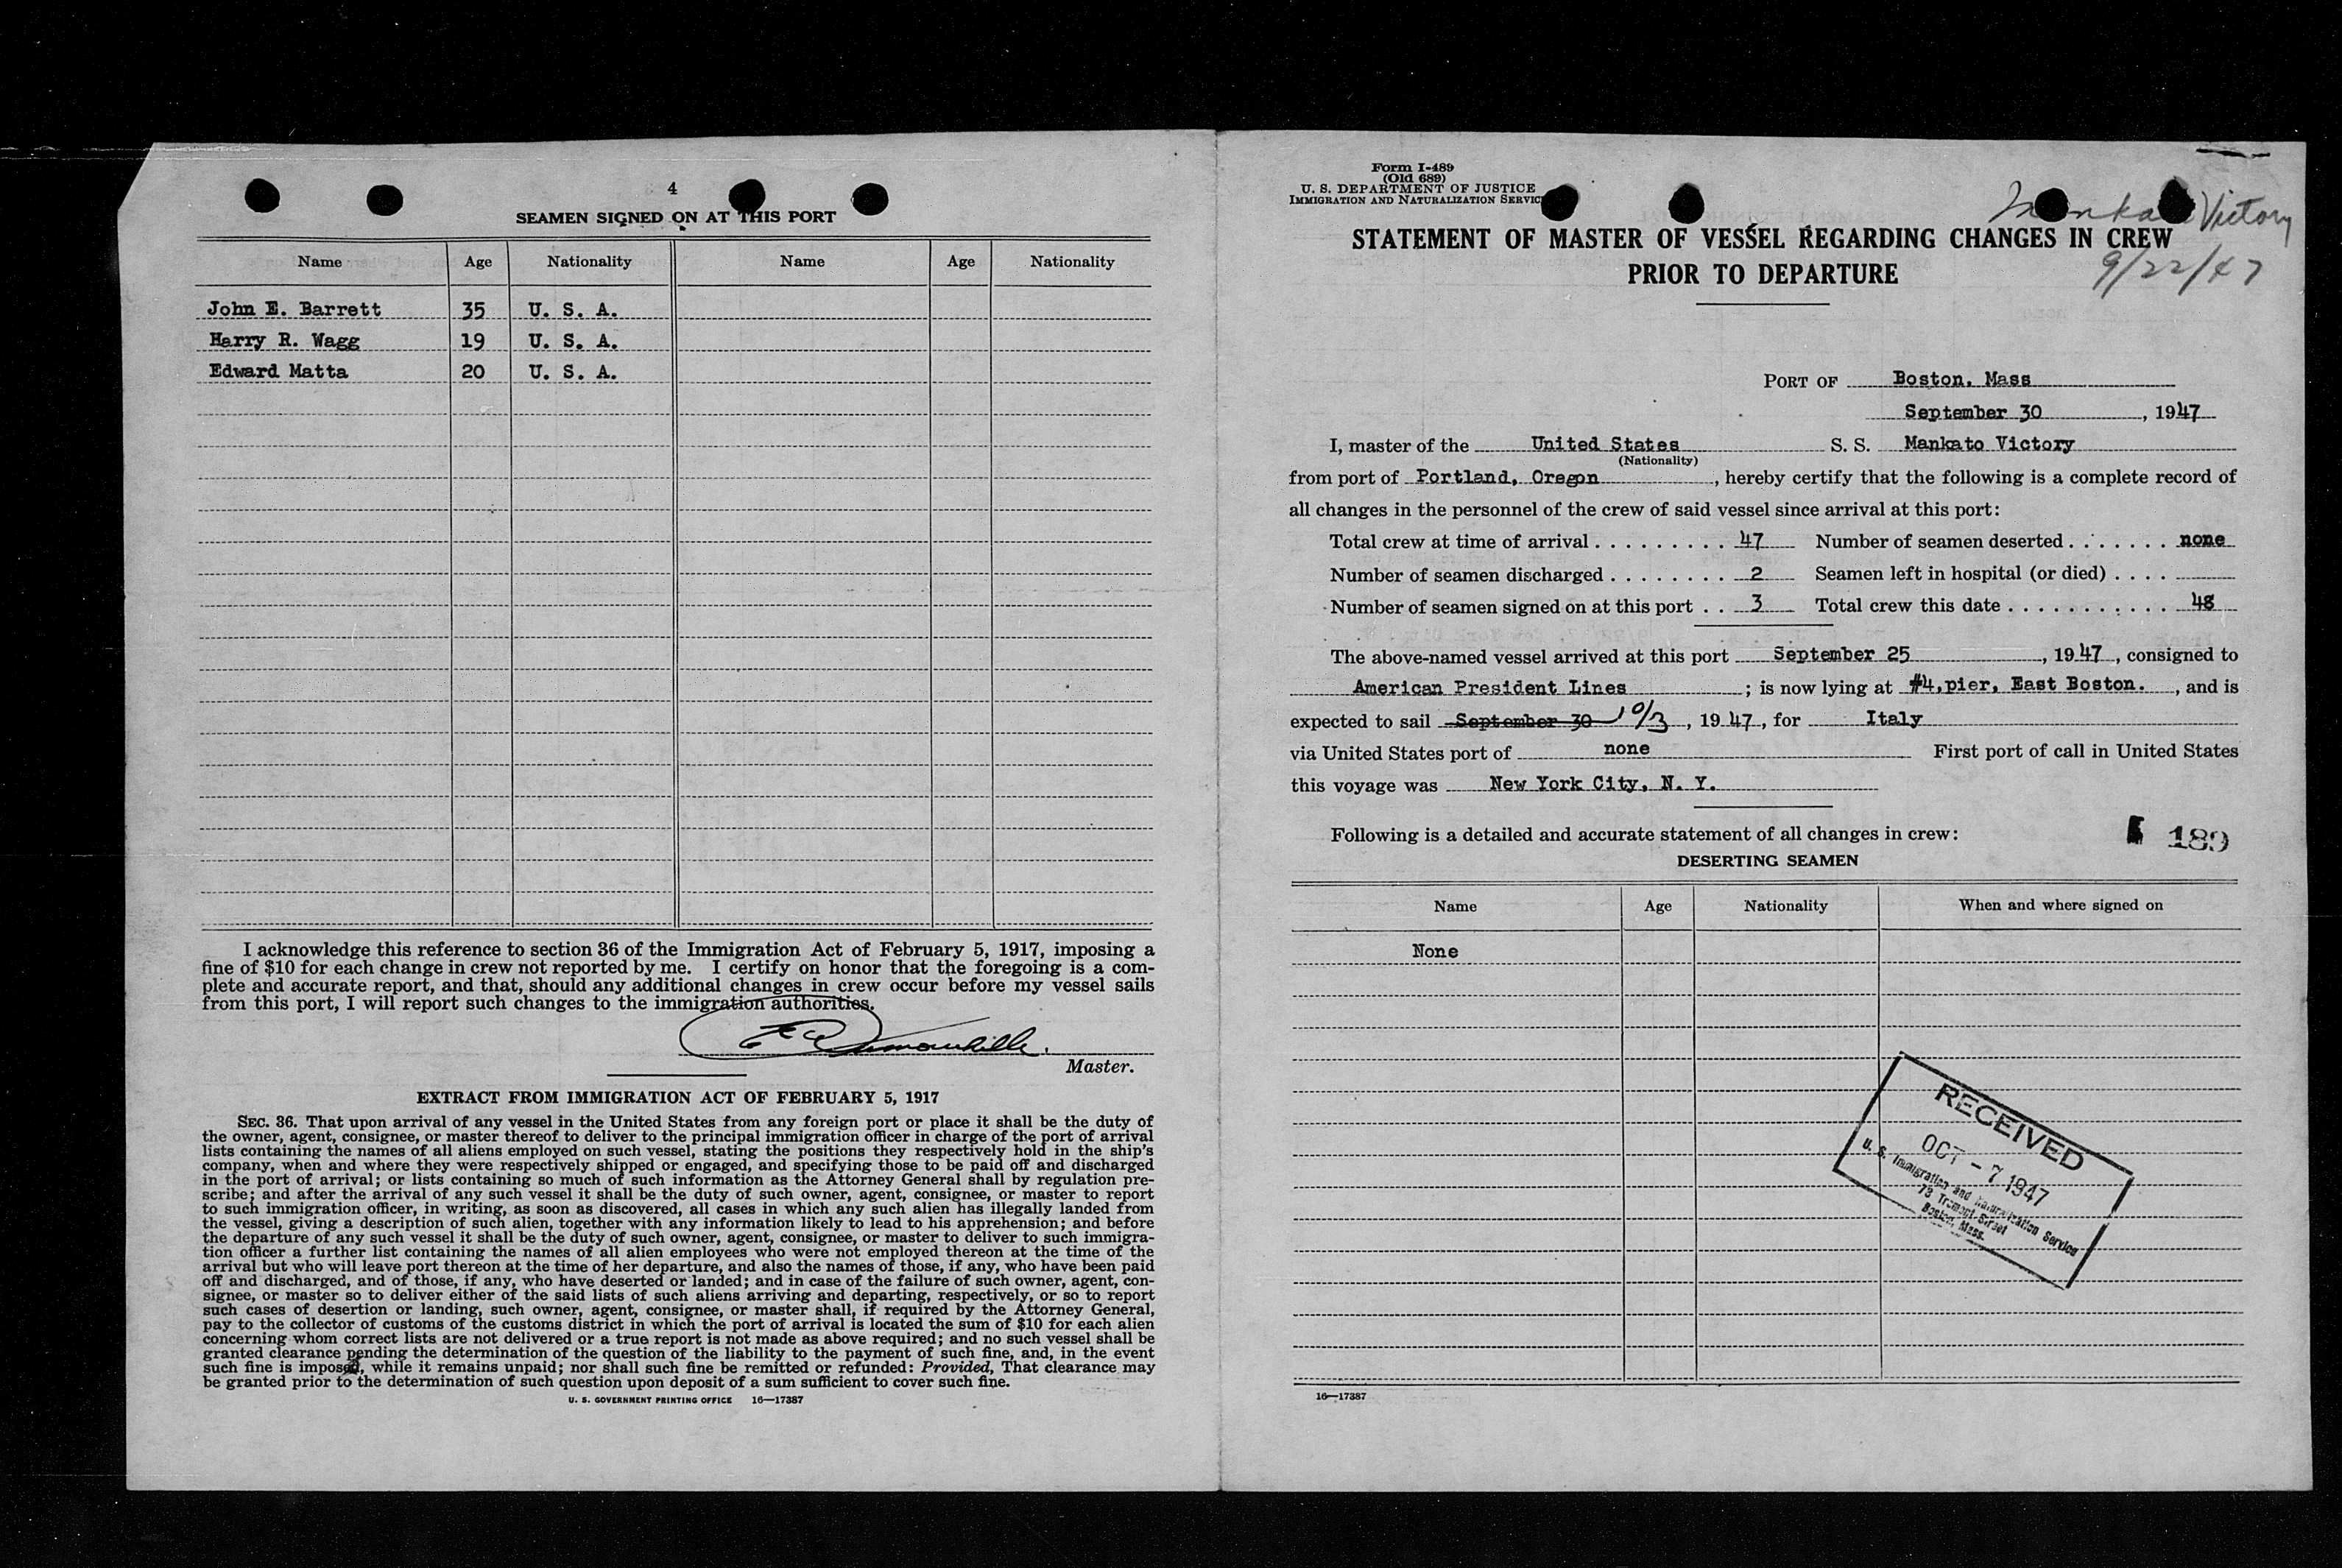 4
SEAMEN SIGNED ON AT THIS PORT
Name Age Nationality Name Age Nationality
John E. Barrett 35 U. S. A.
Harry R. Wagg 19 U. S. A.
Edward Matta 20 U. S. A.
I acknowledge this reference to section 36 of the Immigration Act of February 5, 1917, imposing a
fine of $10 for each change in crew not reported by me. I certify on honor that the foregoing is a com-
plete and accurate report, and that, should any additional changes in crew occur before my vessel sails
from this port, I will report such changes to the immigration authorities.
Master.
EXTRACT FROM IMMIGRATION ACT OF FEBRUARY 5, 1917
SEC. 36. That upon arrival of any vessel in the United States from any foreign port or place it shall be the duty of
the owner, agent, consignee, or master thereof to deliver to the principal immigration officer in charge of the port of arrival
lists containing the names of all aliens employed on such vessel, stating the positions they respectively hold in the ship's
company, when and where they were respectively shipped or engaged, and specifying those to be paid off and discharged
in the port of arrival; or lists containing so much of such information as the Attorney General shall by regulation pre-
scribe; and after the arrival of any such vessel it shall be the duty of such owner, agent, consignee, or master to report
to such immigration officer, in writing, as soon as discovered, all cases in which any such alien has illegally landed from
the vessel, giving a description of such alien, together with any information likely to lead to his apprehension; and before
the departure of any such vessel it shall be the duty of such owner, agent, consignee, or master to deliver to such immigra-
tion officer a further list containing the names of all alien employees who were not employed thereon at the time of the
arrival but who will leave port thereon at the time of her departure, and also the names of those, if any, who have been paid
off and discharged, and of those, if any, who have deserted or landed; and in case of the failure of such owner, agent, con-
signee, or master so to deliver either of the said lists of such aliens arriving and departing, respectively, or so to report
such cases of desertion or landing, such owner, agent, consignee, or master shall, if required by the Attorney General,
pay to the collector of customs of the customs district in which the port of arrival is located the sum of $10 for each alien
concerning whom correct lists are not delivered or a true report is not made as above required; and no such vessel shall be
granted clearance pending the determination of the question of the liability to the payment of such fine, and, in the event
such fine is imposed, while it remains unpaid; nor shall such fine be remitted or refunded: Provided, That clearance may
be granted prior to the determination of such question upon deposit of a sum sufficient to cover such fine.
U. S. GOVERNMENT PRINTING OFFICE 16—17387
Form I-489
(Old 689)
U. S. DEPARTMENT OF JUSTICE
IMMIGRATION AND NATURALIZATION SERVICE
Mankato Victory
9/22/47
STATEMENT OF MASTER OF VESSEL REGARDING CHANGES IN CREW
PRIOR TO DEPARTURE
PORT OF Boston, Mass
September 30, 1947
I, master of the United States S. S. Mankato Victory
(Nationality)
from port of Portland, Oregon, hereby certify that the following is a complete record of
all changes in the personnel of the crew of said vessel since arrival at this port:
Total crew at time of arrival . . . . . . . . . 47 Number of seamen deserted . . . . . . . none
Number of seamen discharged . . . . . . . . 2 Seamen left in hospital (or died) . . . .
Number of seamen signed on at this port . . 3 Total crew this date . . . . . . . . . . . 48
The above-named vessel arrived at this port September 25, 1947, consigned to
American President Lines; is now lying at #4,pier, East Boston., and is
expected to sail September 30 10/3, 1947, for Italy
via United States port of none First port of call in United States
this voyage was New York City, N. Y.
Following is a detailed and accurate statement of all changes in crew:
189
DESERTING SEAMEN
Name Age Nationality When and where signed on
None
RECEIVED
OCT - 7 1947
U. S. Immigration and Naturalization Service
73 Tremont Street
Boston, Mass.
16—17387